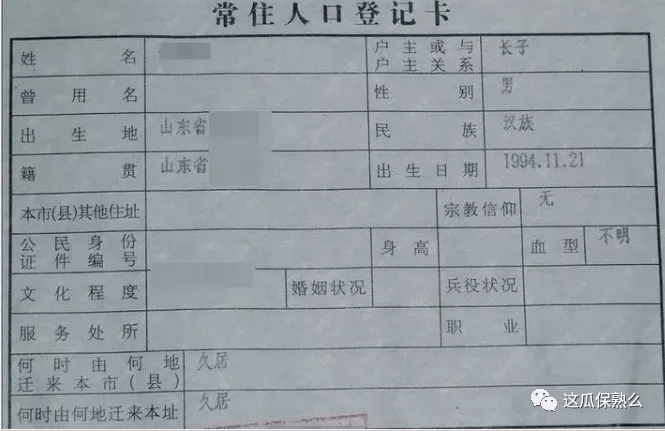 常住人口登记卡
姓名 户主或与户主关系 长子
曾用名 性别 男
出生地 山东省 民族 汉族
籍贯 山东省 出生日期 1994.11.21
本市(县)其他住址 宗教信仰 无
公民身份证件编号 身高 血型 不明
文化程度 婚姻状况 兵役状况
服务处所 职业
何时由何地迁来本市(县) 久居
何时由何地迁来本址 久居
这瓜保熟么